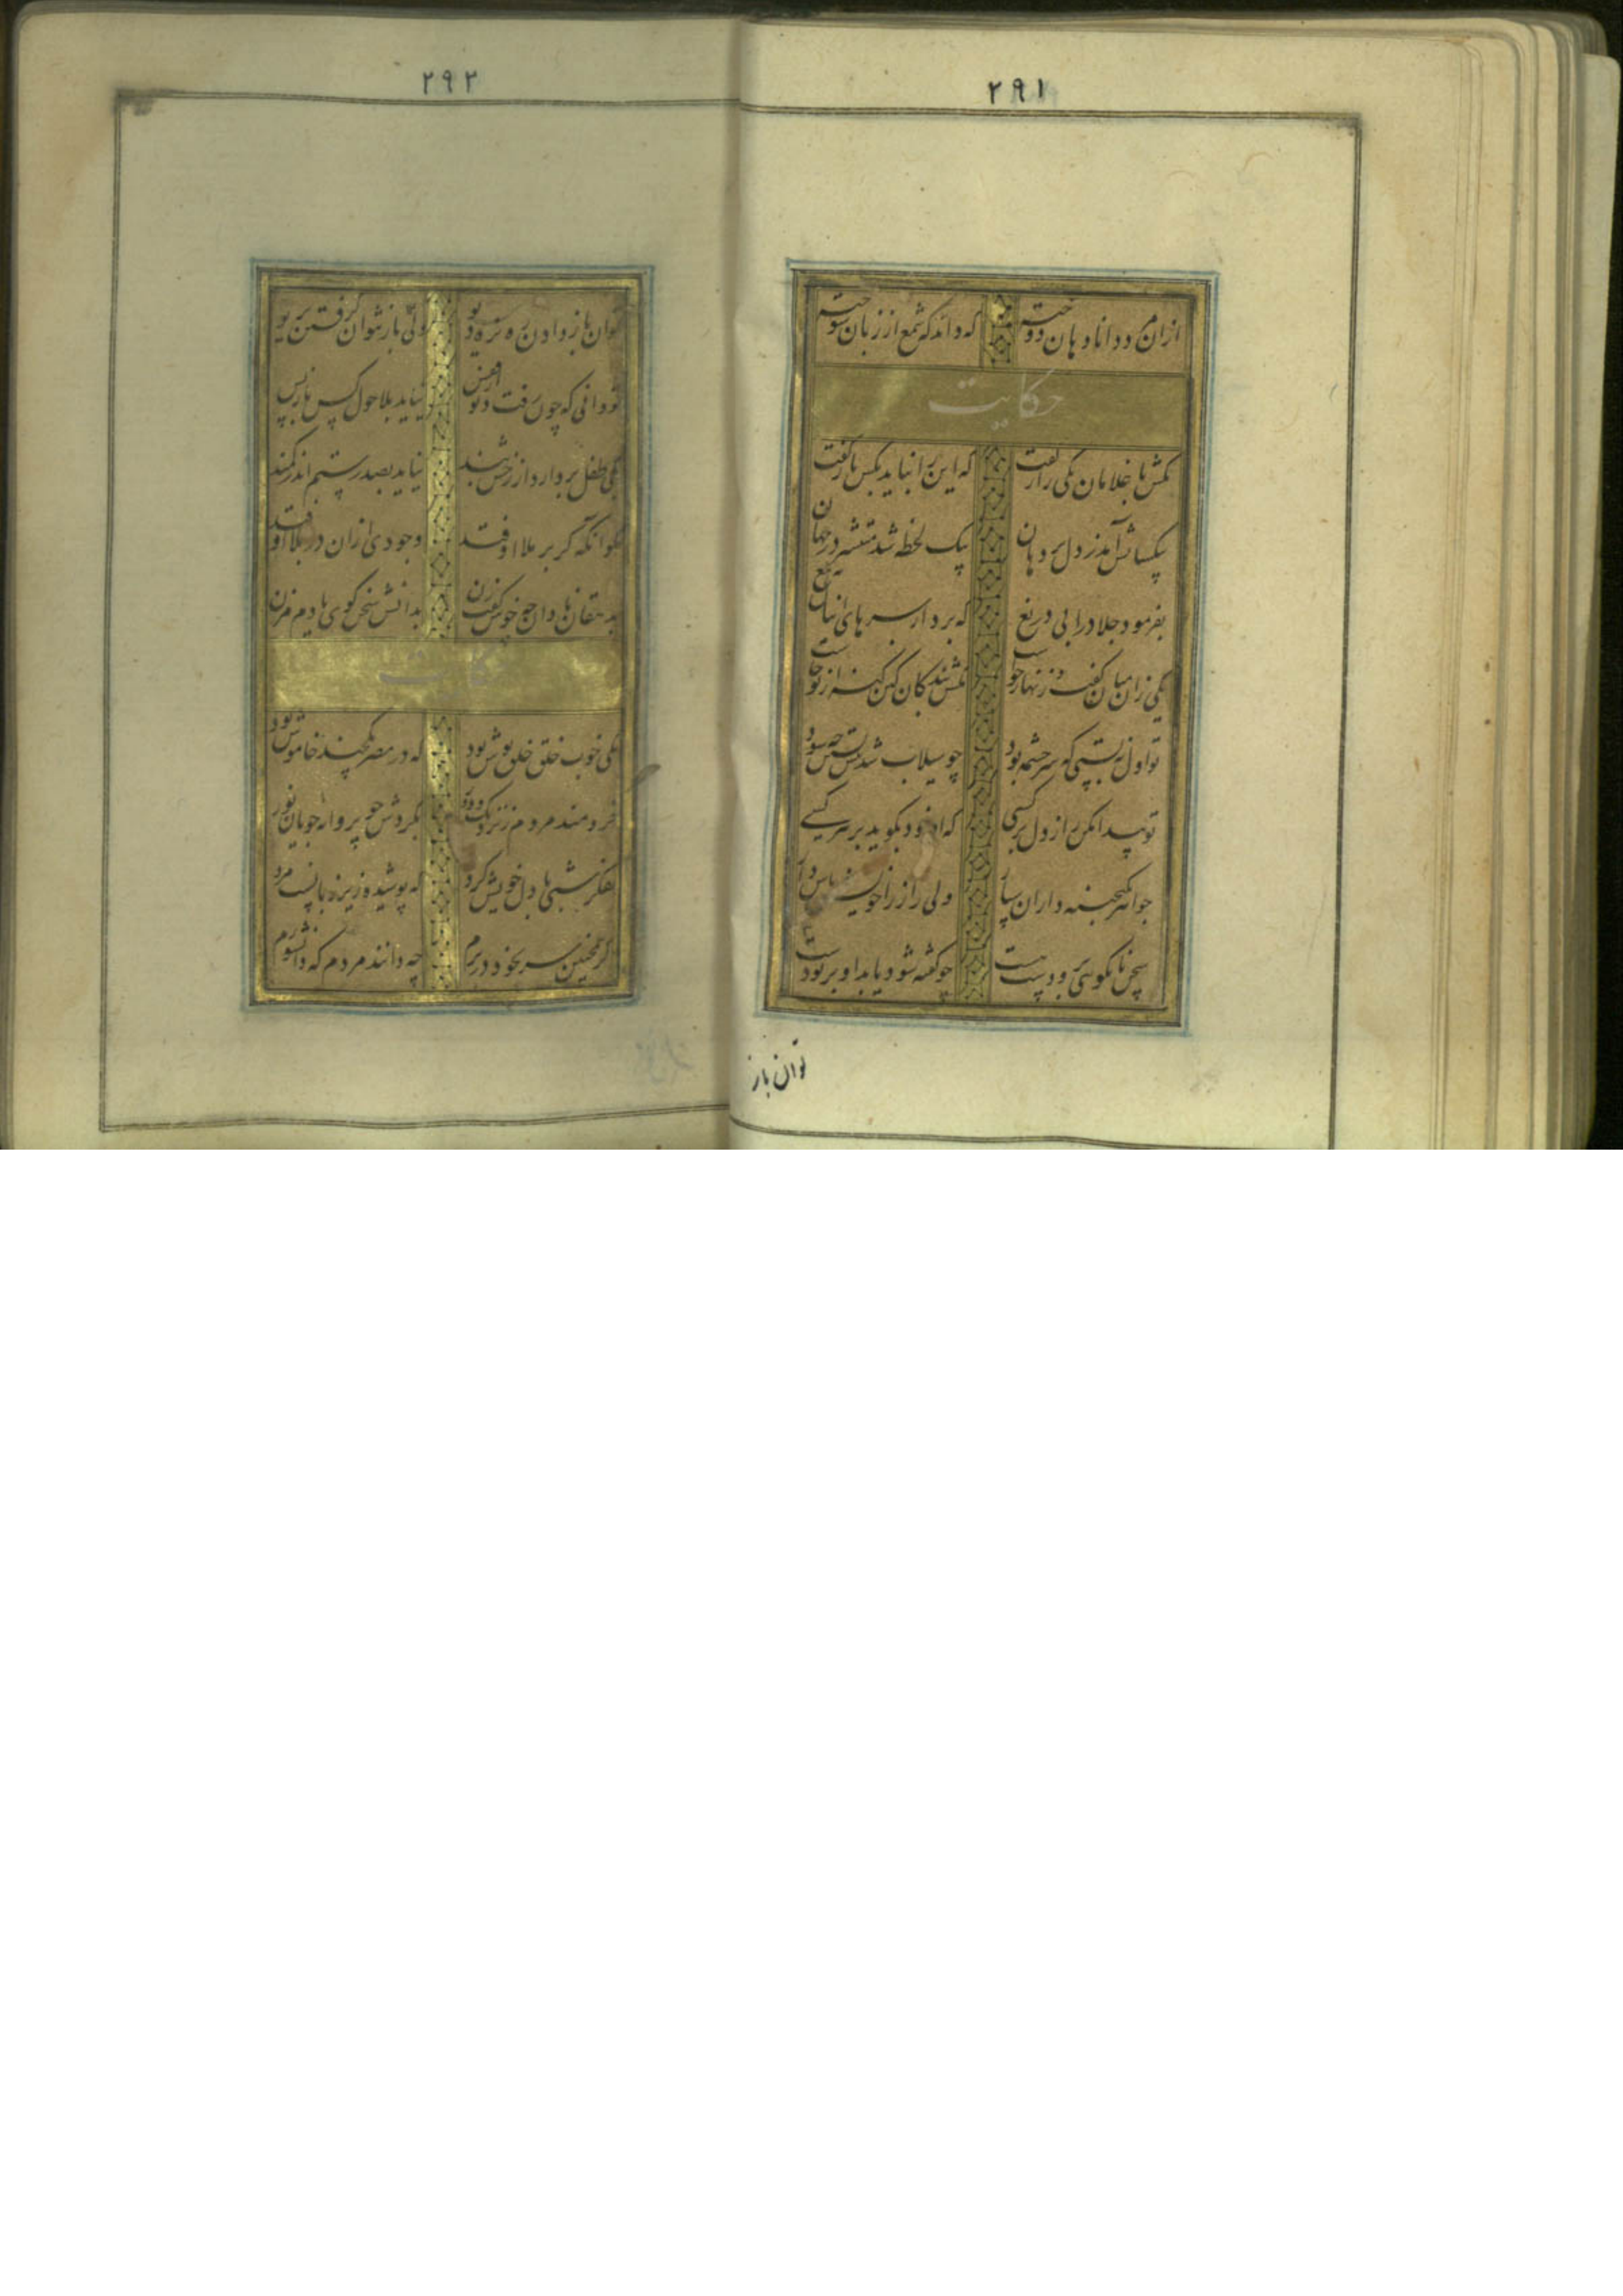 ۲۹۱
ازان مرد دانا دهان دوخته که داند که شمع از زبان سوخته
حکایت
تکش با غلامان یکی راز گفت که این را نباید بکس باز گفت
بیکسالش آمد ز دل بر دهان بیک لحظه شد منتشر در جهان
بفرمود جلاد را بی دریغ که بردار سرهای اینان به تیغ
یکی زان میان گفت و زنهار خواست مکش بندگان کین گنه از تو خاست
تو اول نبستی که سرچشمه بود چو سیلاب شد پیش بستن چه سود
تو پیدا مکن راز دل بر کسی که او خود بگوید بر هر کسی
جواهر بگنجینه داران سپار ولی راز را خویشتن پاس دار
سخن تا نگوئی برو دست هست چو گفته شود یابد او بر تو دست
توان باز
۲۹۲
توان باز دادن ره نره دیو ولی باز نتوان گرفتن بریو
تو دانی که چون دیو رفت از قفس نیاید بلاحول کس باز پس
یکی طفل بردارد از رخش بند نیاید بصد رستم اندر کمند
مگو آنکه گر بر ملا اوفتد وجودی ازان در بلا اوفتد
بدهقان نادان چه خوش گفت زن بدانش سخن گوی یا دم مزن
حکایت
یکی خوب خلق خلق پوش بود که در مصر یکچند خاموش بود
خردمند مردم ز نزدیک و دور بگردش چو پروانه جویان نور
تفکر شبی با دل خویش کرد که پوشیده زیر زبانست مرد
گر همچنین سر بخود در برم چه دانند مردم که دانشورم